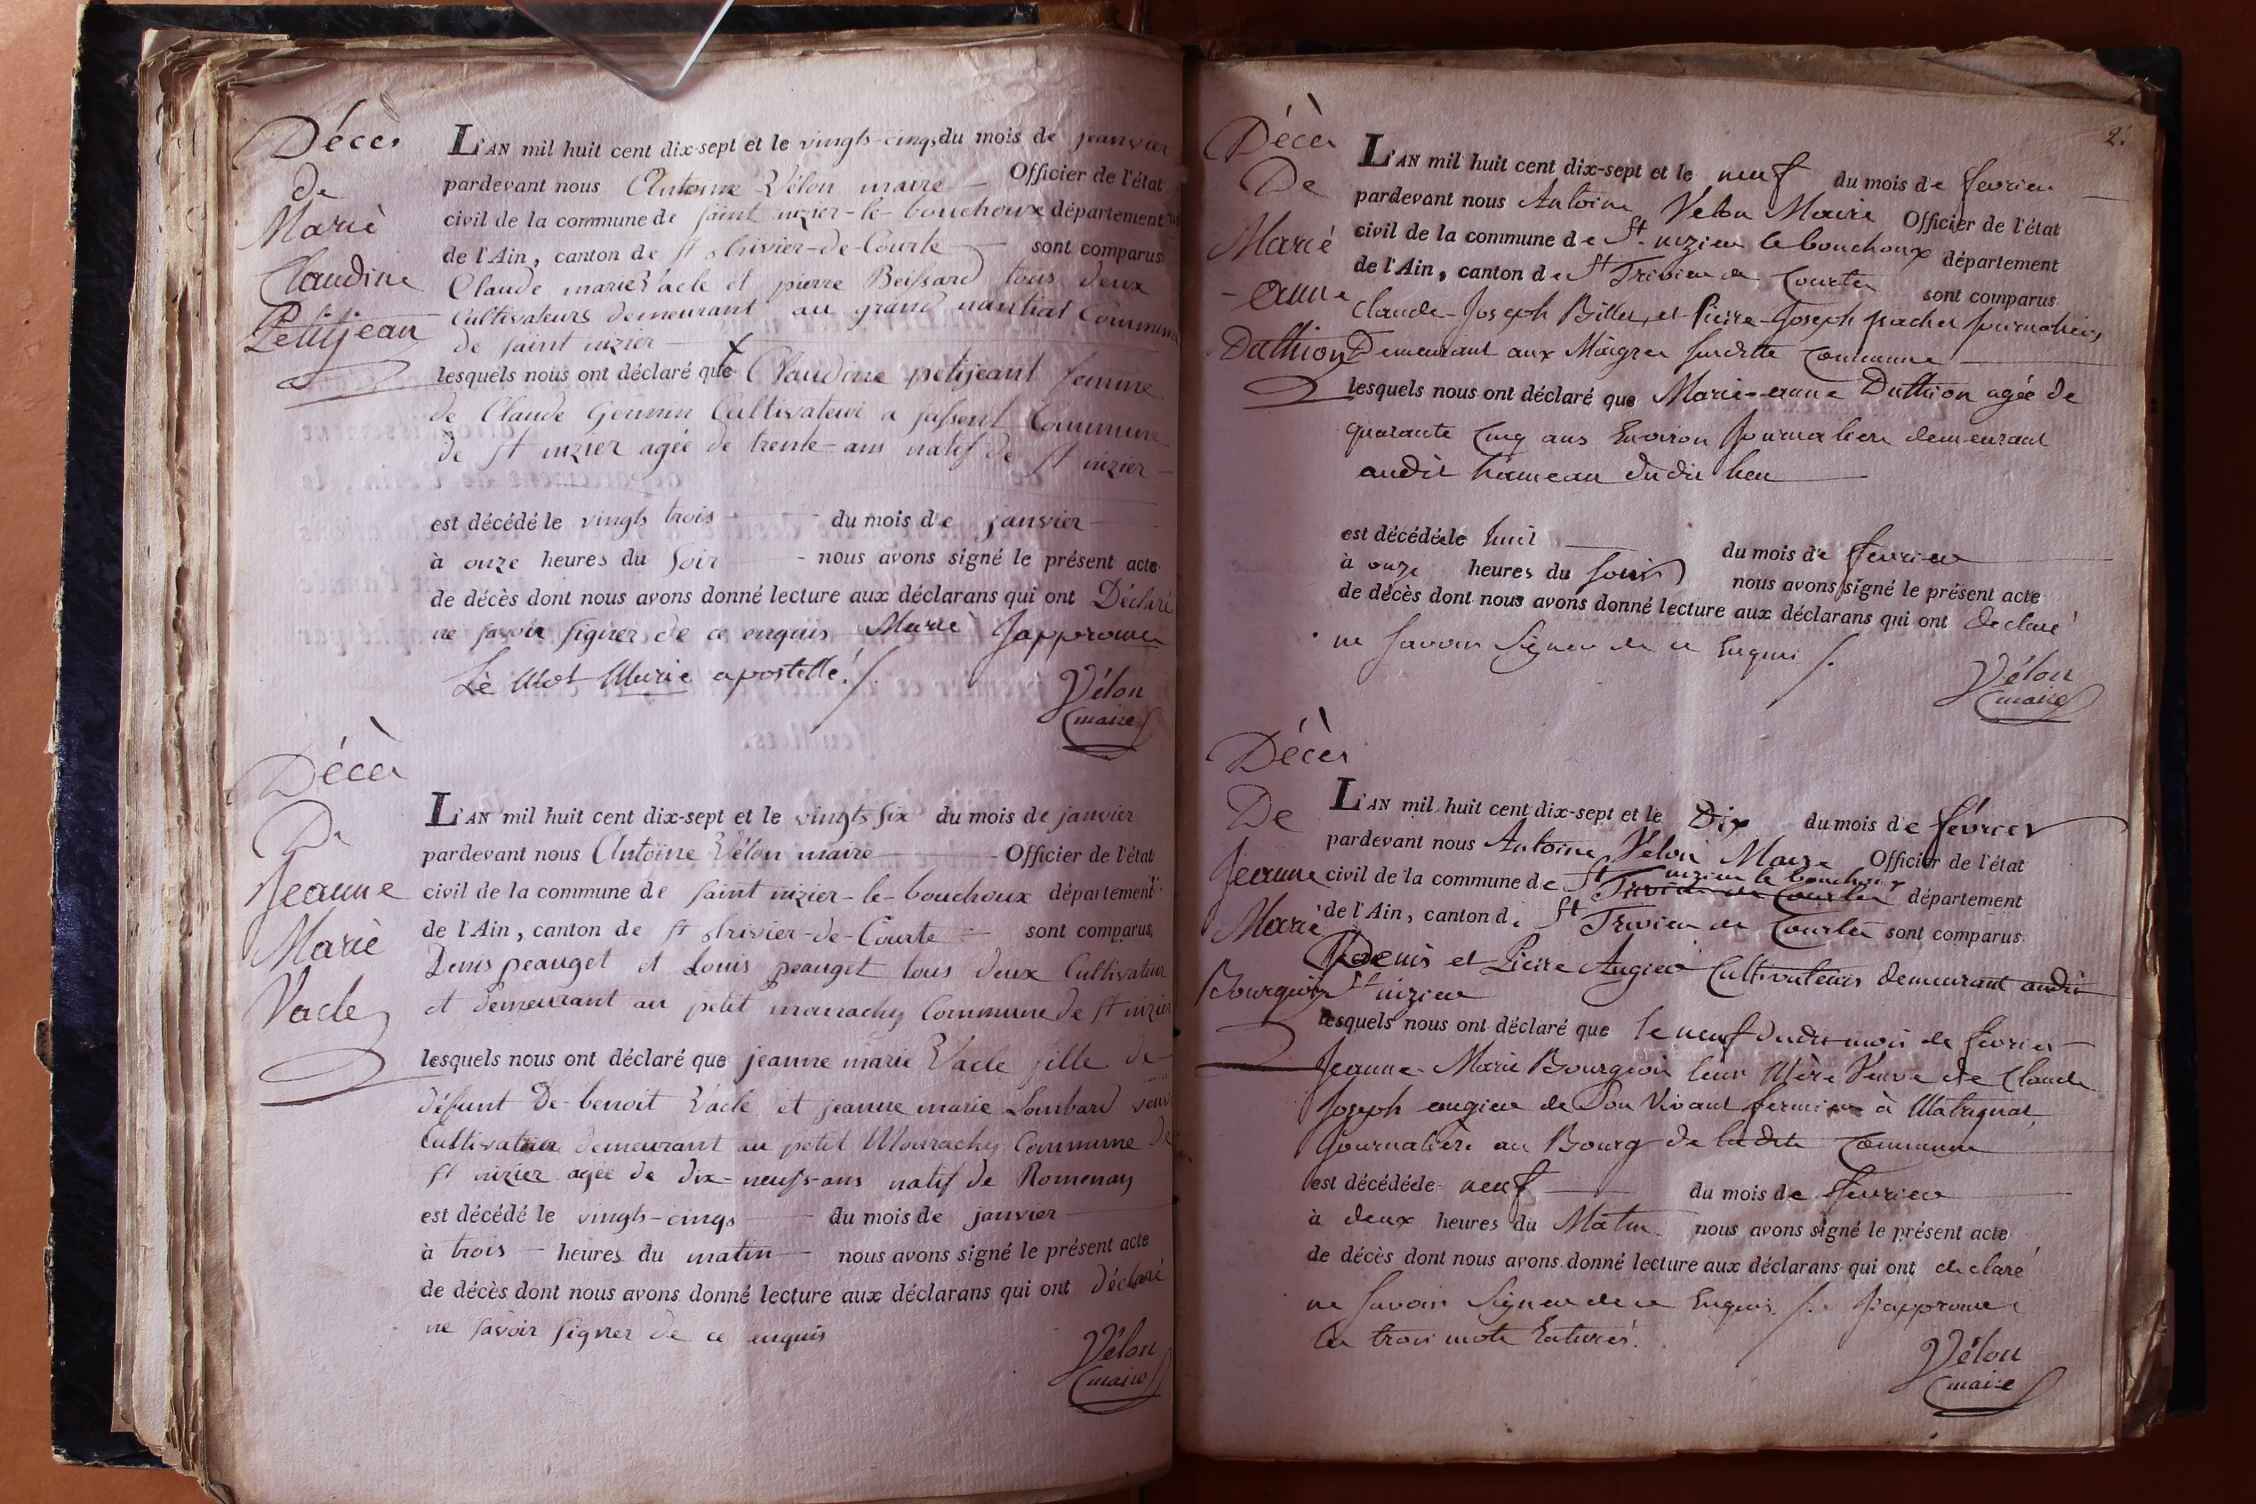 Décès
de
Marie
Claudine
Petitjean
L'AN mil huit cent dix-sept et le vingts-cinqs du mois de jeanvier
pardevant nous Antoine Vélon maire Officier de l'état
civil de la commune de saint nizier-le-bouchoux département
de l'Ain, canton de st trivier-de-Courte sont comparus
Claude marie Vacle et pierre Boissard tous deux
Cultivateurs demeurant au grand nantiat Commune
de saint nizier
lesquels nous ont déclaré que Claudine petijeant femme
de Claude Goumin Cultivateur a passent Commune
de st nizier agée de trente-ans natif de st nizier
est décédé le vingts trois du mois de janvier
à onze heures du soir nous avons signé le présent acte
de décès dont nous avons donné lecture aux déclarans qui ont Déclaré
ne savoir signer de ce enquis Marie Japprouve
Le Mot Marie apostillé ./.
Vélon
maire
Décès
De
Jeanne
Marie
Vacle
L'AN mil huit cent dix-sept et le vingts six du mois de janvier
pardevant nous Antoine Vélon maire Officier de l'état
civil de la commune de saint nizier-le-bouchoux département
de l'Ain, canton de st trivier-de-Courte sont comparus
Denis peauget et Louis peauget tous deux Cultivateur
et demeurant au petit mourachy Commune de st nizier
lesquels nous ont déclaré que jeanne marie Vacle fille de
défunt De benoit Vacle et jeanne marie Lombard veuv
Cultivateur demeurant au petit Mourachy Commune de
st nizier agée de dix-neufs-ans natif de Romenay
est décédé le vingts-cinqs du mois de janvier
à trois heures du matin nous avons signé le présent acte
de décès dont nous avons donné lecture aux déclarans qui ont déclaré
ne savoir signer de ce enquis
Vélon
maire
2.
Décès
De
Marie
-eanne
Duthion
L'AN mil huit cent dix-sept et le neuf du mois de fevrier
pardevant nous Antoine Velon Maire Officier de l'état
civil de la commune de St. nizier le bouchoux département
de l'Ain, canton de St Trivier de Courtes sont comparus
Claude-Joseph Billet, et Pierre-Joseph pacher journaliers,
Demeurant aux Maigres susditte Commune
lesquels nous ont déclaré que Marie-eanne Duthion agée de
quarante Cinq ans Environ Journaliere demeurant
audit hameau dudit lieu
est décédée le huit du mois de fevrier
à onze heures du soir nous avons signé le présent acte
de décès dont nous avons donné lecture aux déclarans qui ont declaré
ne savoir Signer de ce Enquis ./.
Vélon
maire
Décès
De
Jeanne
Marie
Bourgeois
L'AN mil huit cent dix-sept et le Dix du mois de février
pardevant nous Antoine Velon Maire Officier de l'état
nizier le bouchoux
civil de la commune de St Trivier de Courtes département
de l'Ain, canton de St Trivier de Courtes sont comparus
Denis et Pierre Augier Cultivateurs demeurant audit
St nizier
lesquels nous ont déclaré que le neuf dudit mois de fevrier
Jeanne-Marie Bourgeois leur Mère Veuve de Claude
Joseph augier de Son Vivant fermier à Matrignat,
Journalière au Bourg de ladite Commune
est décédée le neuf du mois de fevrier
à deux heures du Matin nous avons signé le présent acte
de décès dont nous avons donné lecture aux déclarans qui ont declaré
ne savoir Signer de ce Enquis ./. J'approuve
les trois mots raturés.
Vélon
maire